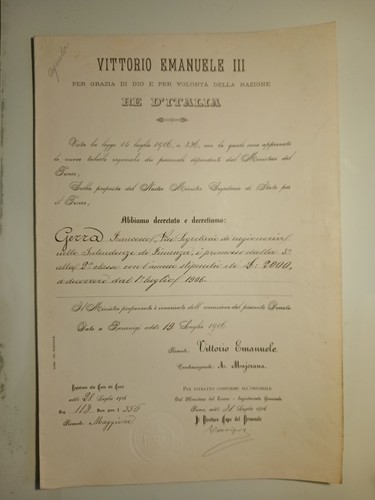 VITTORIO EMANUELE III
PER GRAZIA DI DIO E PER VOLONTÀ DELLA NAZIONE
RE D'ITALIA
Vista la legge 14 luglio 1906, n. 336, con la quale sono approvate
le nuove tabelle organiche del personale dipendente dal Ministero del
Tesoro,
Sulla proposta del Nostro Ministro Segretario di Stato per
il Tesoro,
Abbiamo decretato e decretiamo:
Gezza Francesco, Vice Segretario di ragioneria
nelle Intendenze di Finanza, è promosso dalla 3ª
alla 2ª classe con l'annuo stipendio di L. 2000,
a decorrere dal 1° luglio 1906.
Il Ministro proponente è incaricato dell'esecuzione del presente Decreto.
Dato a addì 19 Luglio 1906
Firmato: Vittorio Emanuele
Contrassegnato A. Majorana
Registrato alla Corte dei Conti
addì 28 Luglio 1906
Reg. 118 Dec. pers. f. 356
Firmato: Maggiore
PER ESTRATTO CONFORME ALL'ORIGINALE
Dal Ministero del Tesoro - Segretariato Generale
Roma, addì 31 Luglio 1906
Il Direttore Capo del Personale